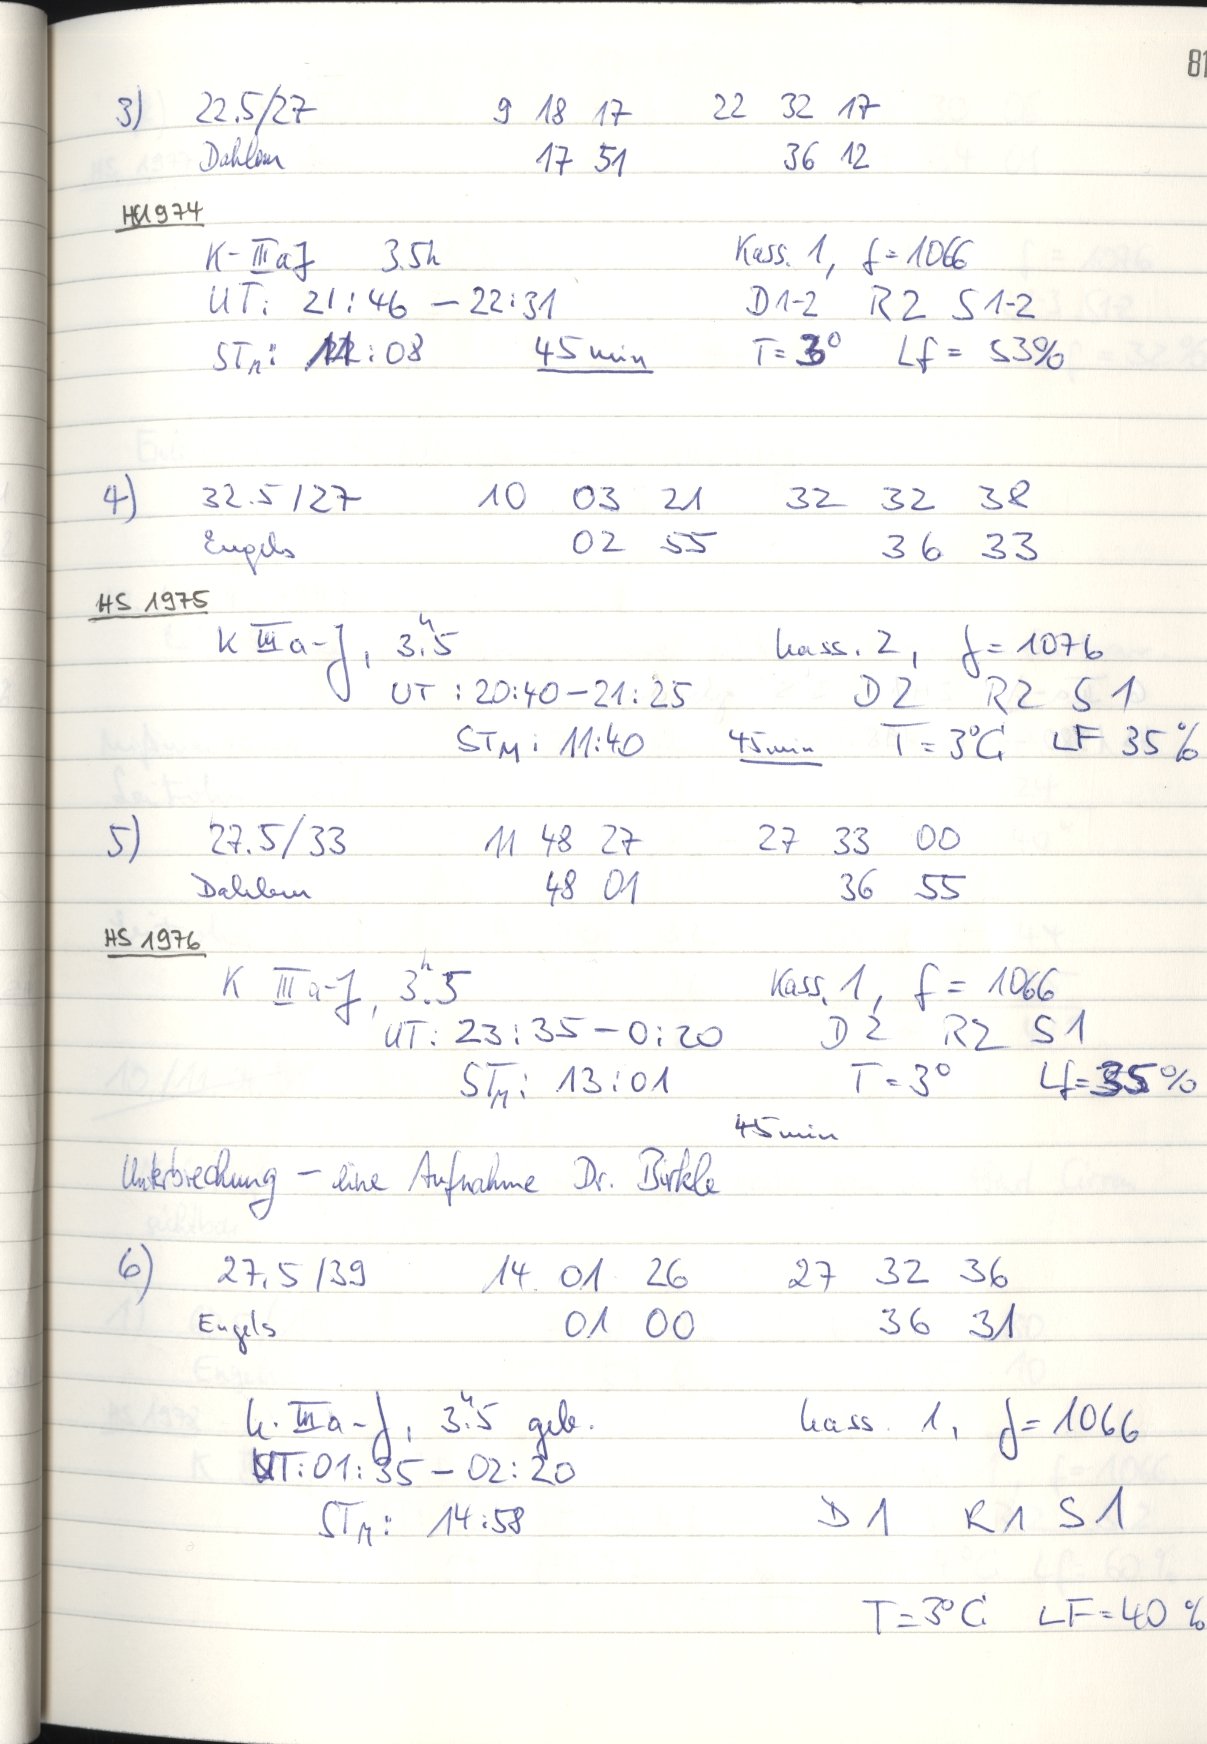 81
3) 22.5/27 9 18 17 22 32 17
Dahlem 17 51 36 12
HS1974
K-III aJ 3.5h Kass. 1, f=1066
UT: 21:46 – 22:31 D1-2 R2 S1-2
STM: :08 45 min T=3° Lf = 53%
4) 32.5/27 10 03 21 32 32 38
Engels 02 55 36 33
HS 1975
K III a-J, 3.h5 Kass. 2, f=1076
UT: 20:40–21:25 D2 R2 S1
STM: 11:40 45min T=3°C LF 35%
5) 27.5/33 11 48 27 27 33 00
Dahlem 48 01 36 55
HS 1976
K III a-J, 3.h5 Kass. 1, f = 1066
UT: 23:35 – 0:20 D2 R2 S1
STM: 13:01 T=3° Lf=35%
45min
Unterbrechung – eine Aufnahme Dr. Birkle
6) 27.5/39 14 01 26 27 32 36
Engels 01 00 36 31
K. III a-J, 3.h5 geb. Kass. 1, f=1066
UT: 01:35 – 02:20
STM: 14:58 D1 R1 S1
T=3°C LF=40%